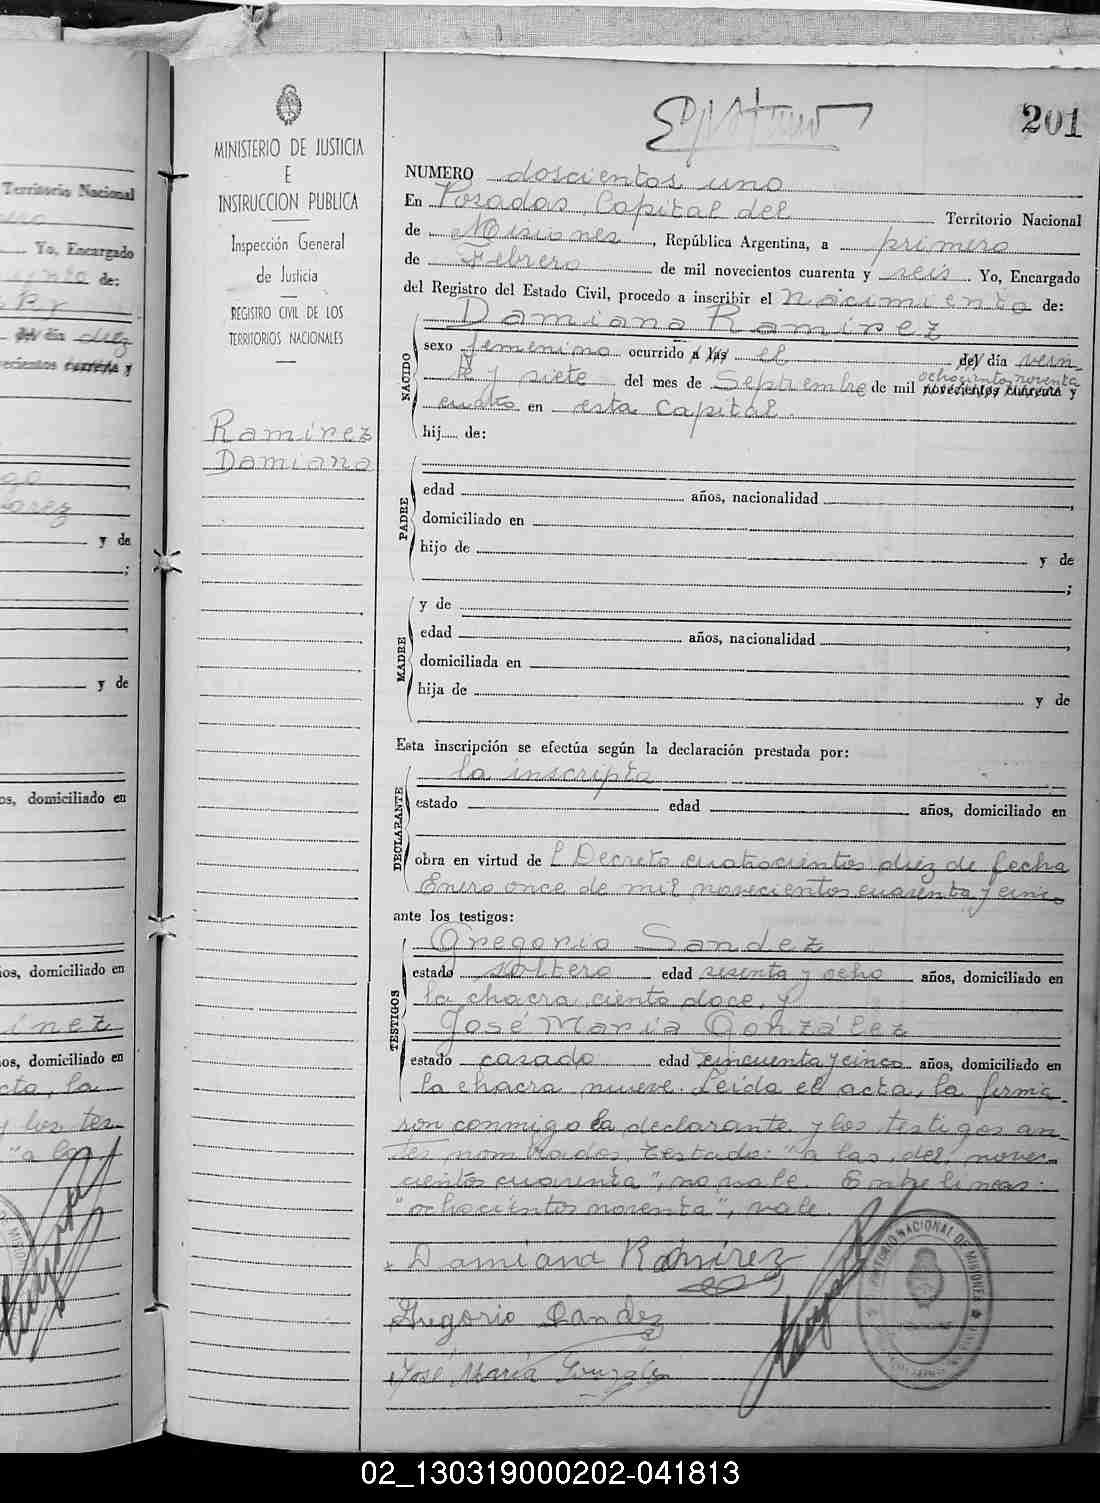 201
MINISTERIO DE JUSTICIA
E
INSTRUCCION PUBLICA
Inspección General
de Justicia
REGISTRO CIVIL DE LOS
TERRITORIOS NACIONALES
Ramírez
Damiana
NUMERO doscientos uno
En Posadas Capital del Territorio Nacional
de Misiones, República Argentina, a primero
de Febrero de mil novecientos cuarenta y seis. Yo, Encargado
del Registro del Estado Civil, procedo a inscribir el nacimiento de:
Damiana Ramírez
NACIDO
sexo femenino ocurrido a las el del día vein
te y siete del mes de Septiembre de mil novecientos cuarenta y
ochocientos noventa
cuatro en esta Capital.
hij de:
PADRE
edad años, nacionalidad ,
domiciliado en
hijo de y de
;
MADRE
y de
edad años, nacionalidad ,
domiciliada en
hija de y de
Esta inscripción se efectúa según la declaración prestada por:
DECLARANTE
la inscripta
estado edad años, domiciliado en
obra en virtud del Decreto cuatrocientos diez de fecha
Enero once de mil novecientos cuarenta y cinco
ante los testigos:
TESTIGOS
Gregorio Sandez
estado soltero edad sesenta y ocho años, domiciliado en
la chacra ciento doce, y
José María González
estado casado edad cincuenta y cinco años, domiciliado en
la chacra nueve. Leída el acta, la firma
ron conmigo la declarante y los testigos an_
tes nombrados. Testado: "a las, del, nove_
cientos cuarenta", no vale. Entre lineas:
"ochocientos noventa", vale.
Damiana Ramírez
Gregorio Sandez
José María González
TERRITORIO NACIONAL DE MISIONES
Territorio Nacional
Yo, Encargado
de:
día diez
y de
;
y de
os, domiciliado en
ios, domiciliado en
ínez
ios, domiciliado en
cta, la
y los tes_
"a la
02_130319000202-041813